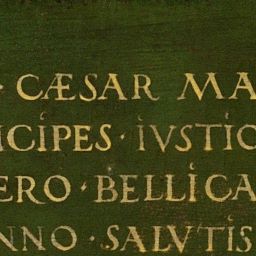 · CÆSAR MA
NCIPES · IVSTIC
ERO · BELLICA
NNO · SALVTIS